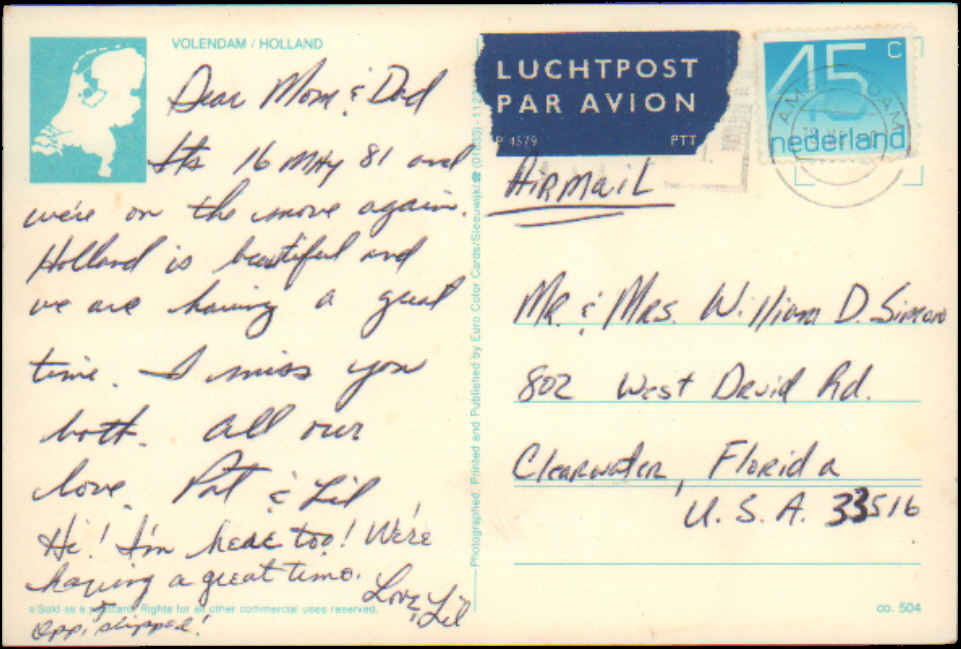 VOLENDAM / HOLLAND
Dear Mom & Dad
Its 16 MAY 81 and
we're on the move again.
Holland is beautiful and
we are having a great
time. I miss you
both. All our
love. Pat & Lil
Hi! I'm here too! We're
having a great time.
Love, Lil
Opp, I slipped!
Sold as a postcard. Rights for all other commercial uses reserved.
Photographed, Printed and Published by Euro Color Cards/Sleeuwijk/☎
LUCHTPOST
PAR AVION
P 4579 PTT
45 c
nederland
AIRMAIL
Mr. & Mrs. William D.
802 West David Rd.
Clearwater, Florida
U. S. A. 33516
co. 504